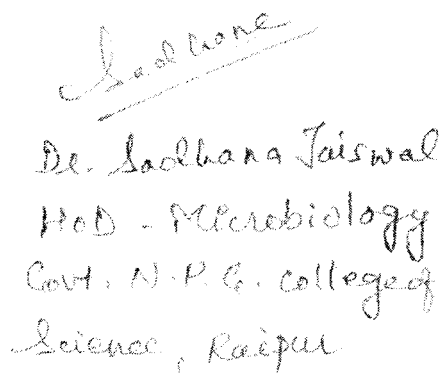 Sadhana
Dr. Sadhana Jaiswal
HOD - Microbiology
Govt. N.P.G. college of
Science, Raipur